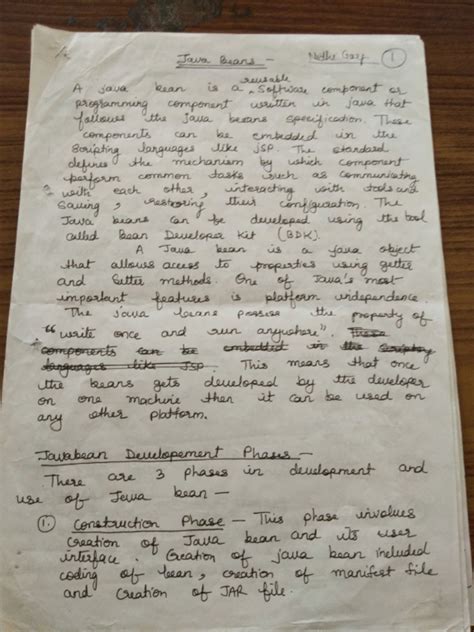 Java Beans —
1
A java bean is a reusable software component or
programming component written in java that
follows the java beans specification. These
components can be embedded in the
Scripting languages like JSP. The standard
defines the mechanism by which component
perform common tasks such as communicating
with each other, interacting with tools and
Saving, restoring their configuration. The
Java beans can be developed using the tool
called Bean Developer Kit (BDK).
A Java bean is a java object
that allows access to properties using getter
and setter methods. One of Java's most
important features is platform independence.
The java beans possess the property of
"write once and run anywhere". These
components can be embedded in the Scripting
languages like JSP. This means that once
the beans gets developed by the developer
on one machine then it can be used on
any other platform.
Javabean Developement Phases —
There are 3 phases in development and
use of Java bean —
1. Construction Phase — This phase involves
Creation of Java bean and its user
interface. Creation of java bean included
coding of bean, creation of manifest file
and Creation of JAR file.